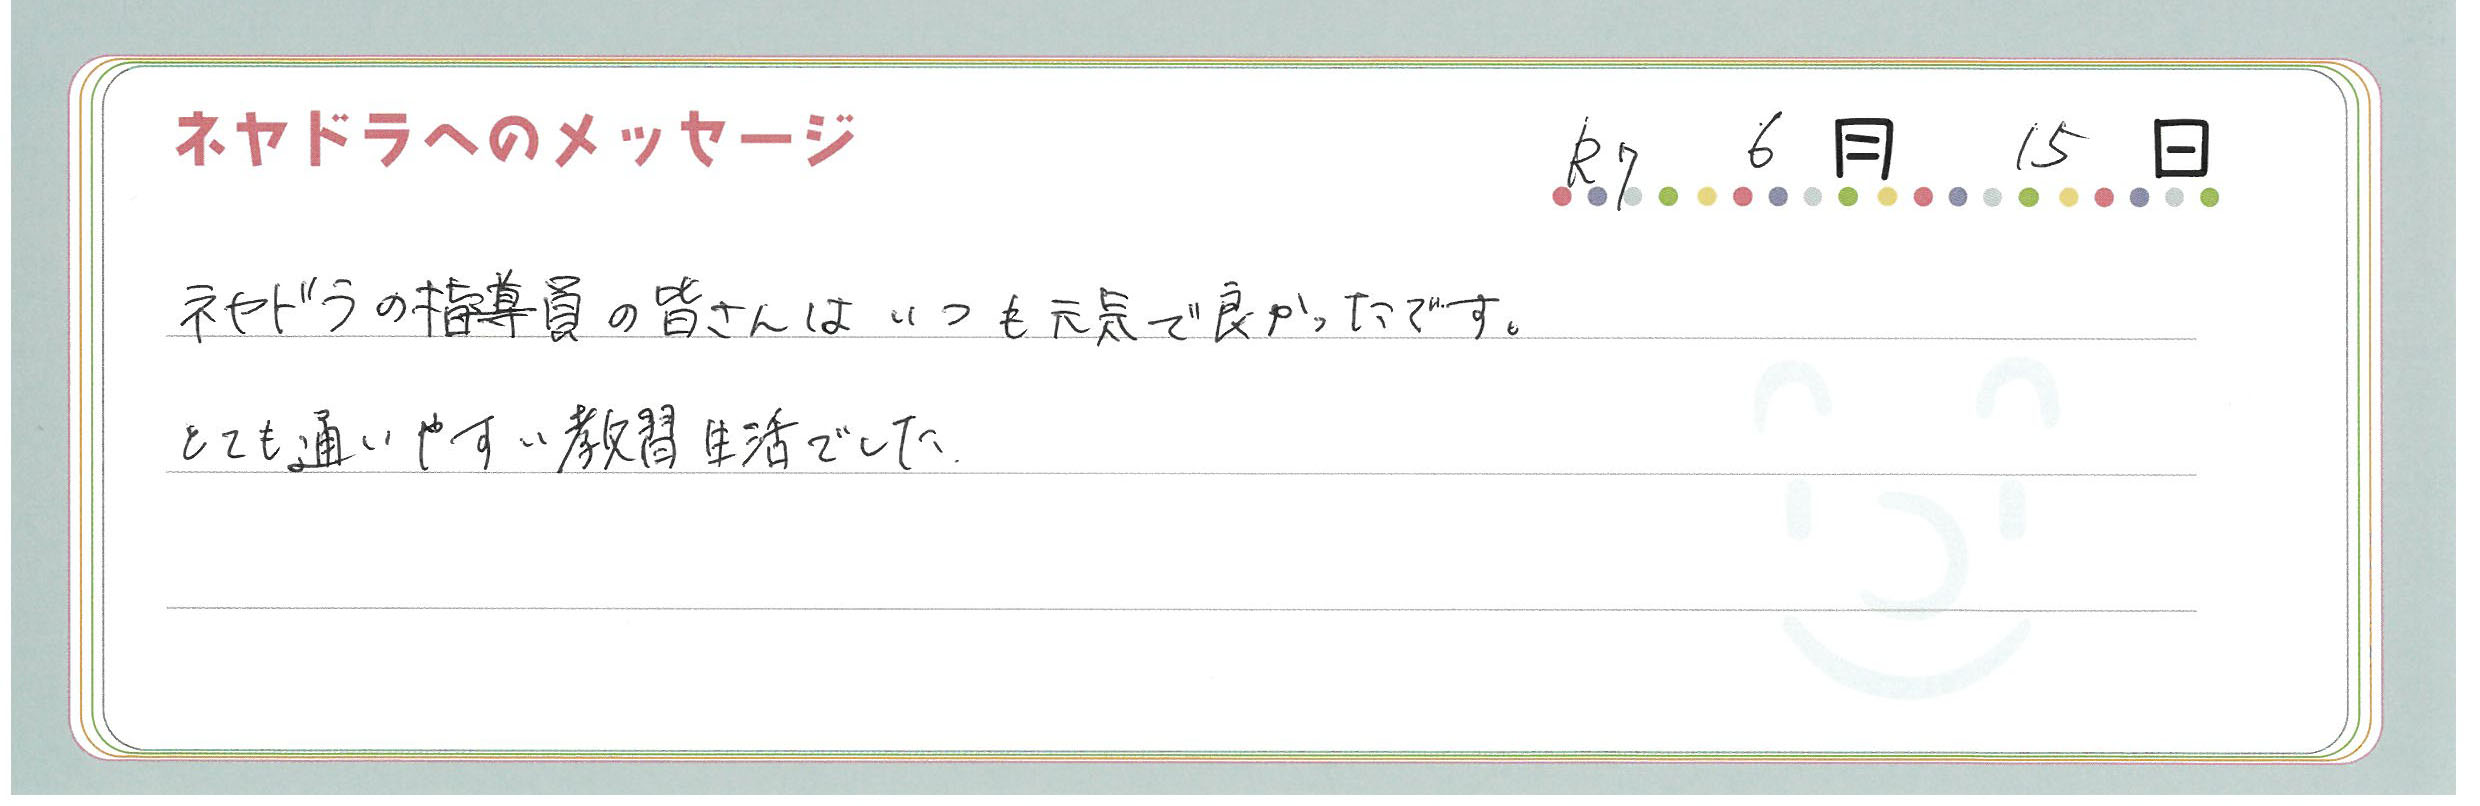 ネヤドラへのメッセージ
R7 6月 15日
ネヤドラの指導員の皆さんはいつも元気で良かったです。
とても通いやすい教習生活でした.